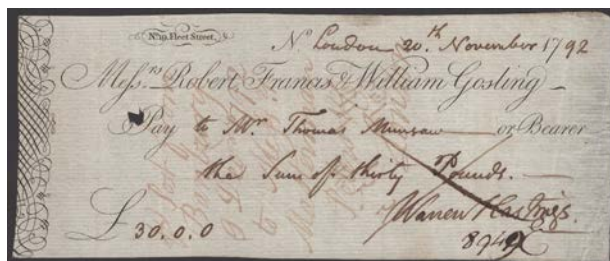 No. 19, Fleet Street.
No London 20.th November 1792
Mess.rs Robert Francis & William Gosling
Pay to Mr Thomas or Bearer
the Sum of thirty Pounds.
£ 30.0.0
Warren Hastings.